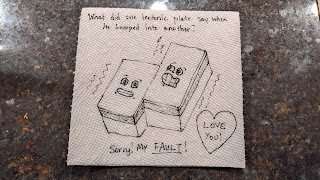 What did one tectonic plate say when
he bumped into another?
LOVE
YOU!
Sorry! My FAULT!